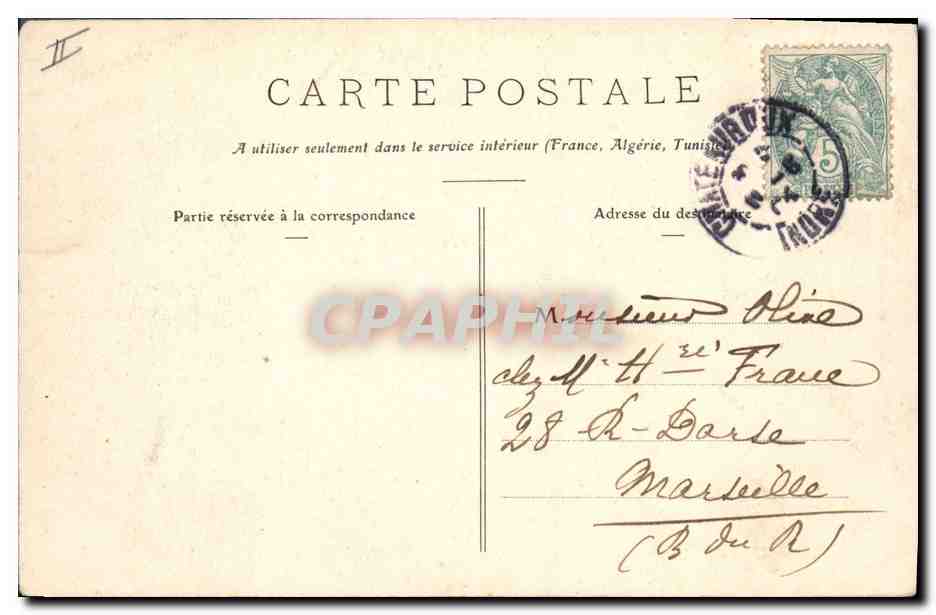 II
CARTE POSTALE
A utiliser seulement dans le service intérieur (France, Algérie, Tunisie)
Partie réservée à la correspondance
Adresse du destinataire
CHATEAUROUX
INDRE
5
CPAPHIL
Monsieur Olive
chez Mr H Franc
28 R- Darse
Marseille
(B du R)